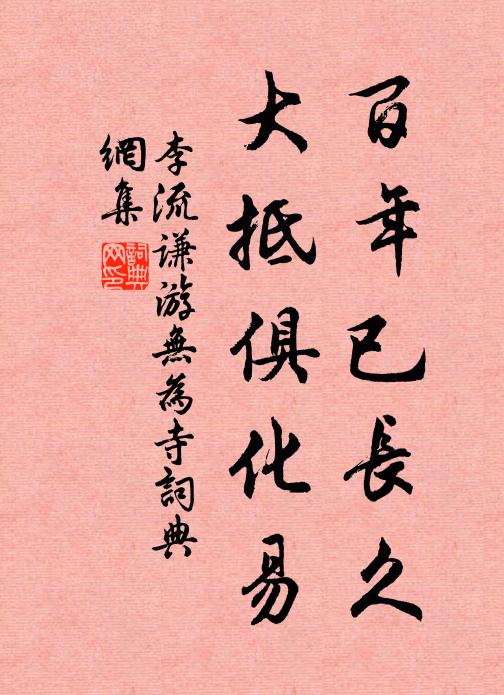 百年已長久
大抵俱化易
李流谦游無為寺詞典
網集
詞典
网印